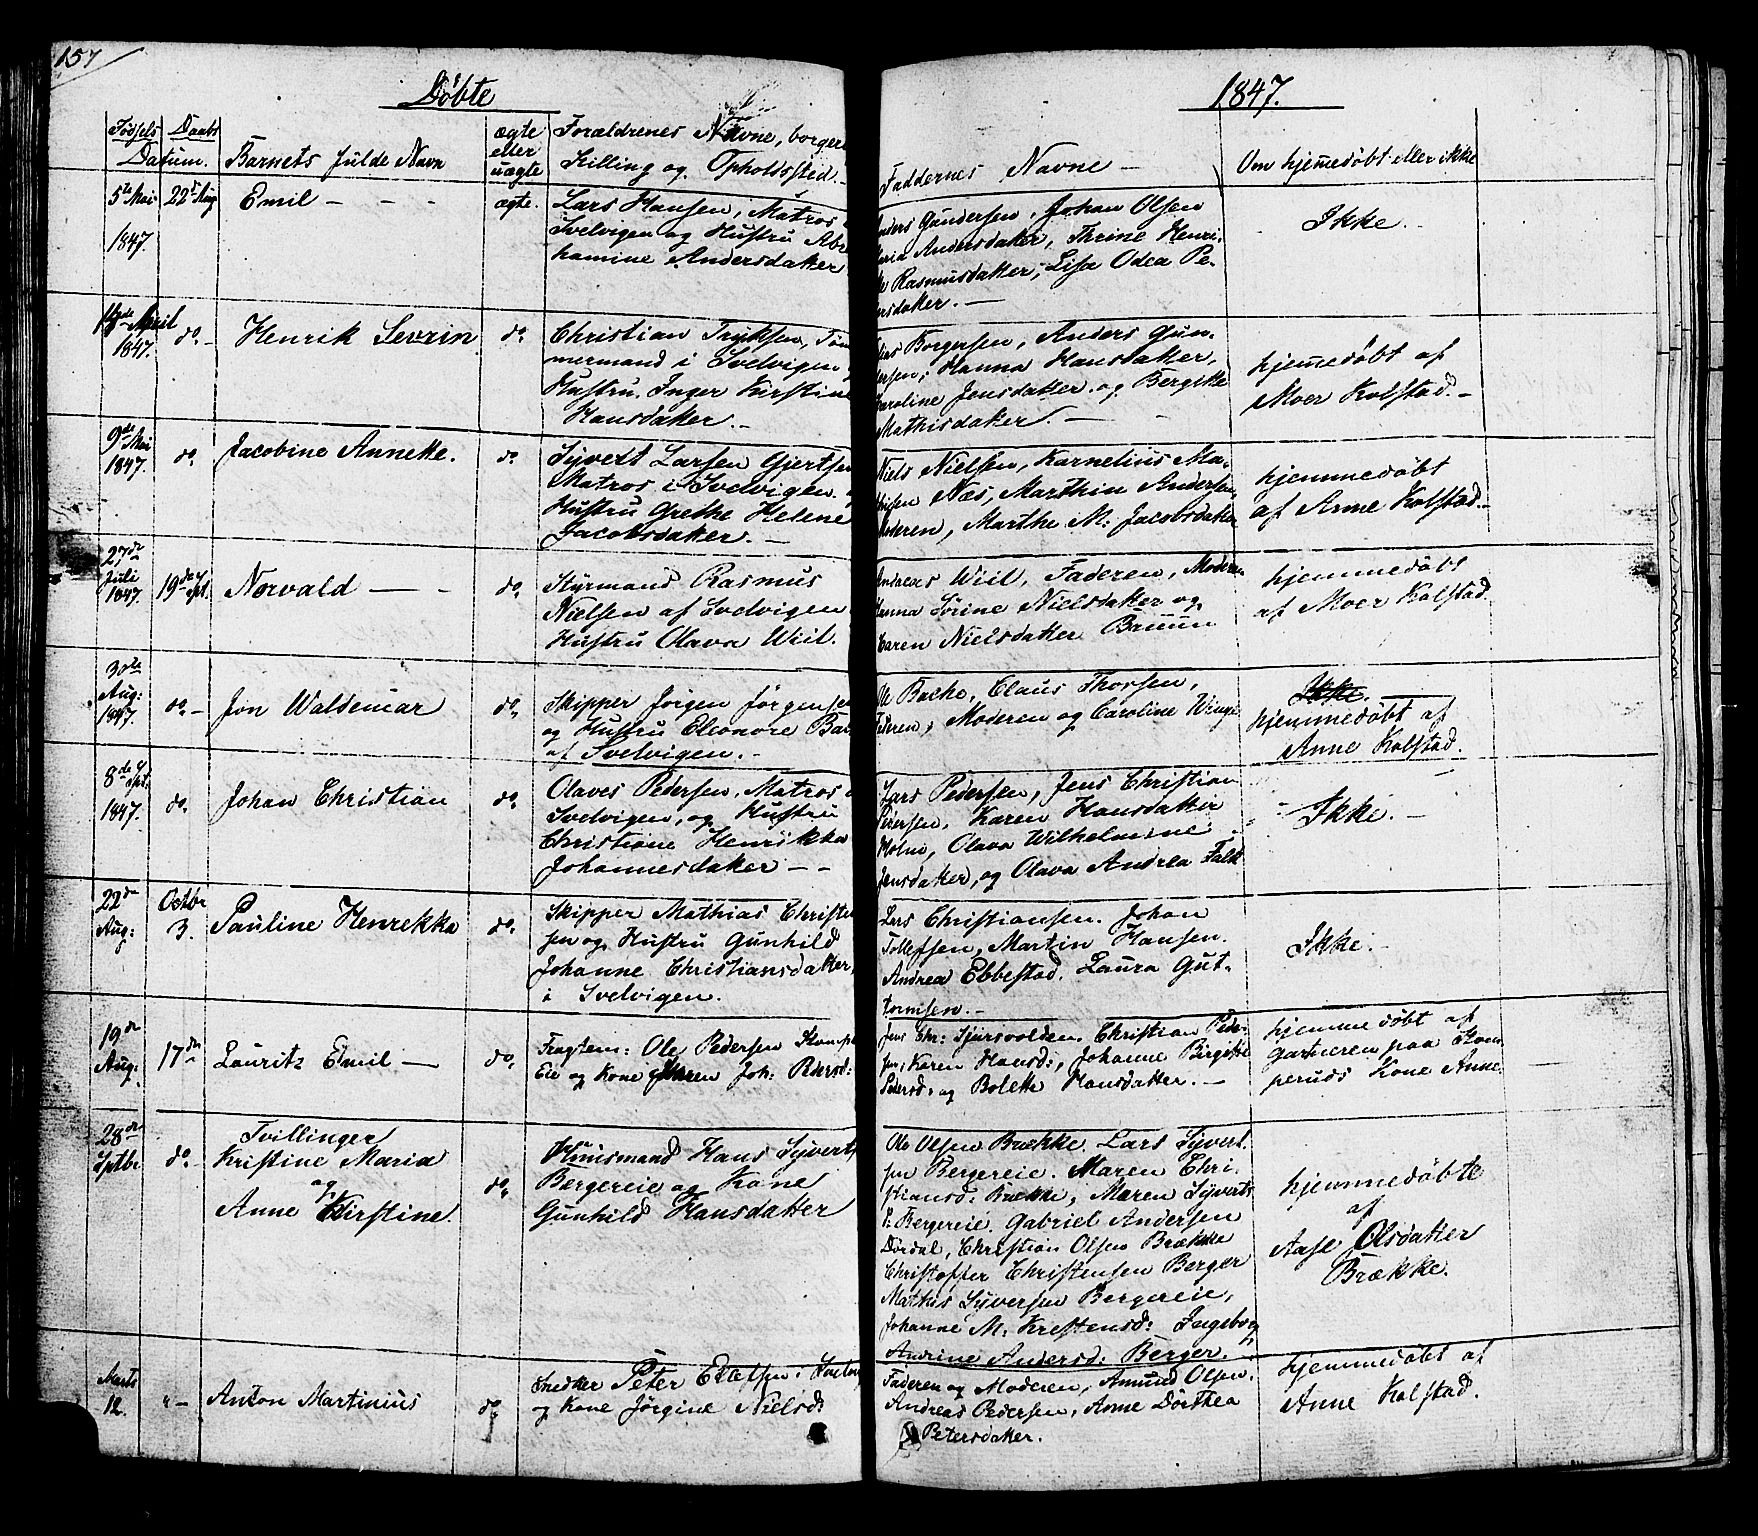 157
Døbte
1847.
Fødsels Daabs
Datum.
Barnets fulde Navn
ægte
eller
uægte
Forældrenes Navne, borger
Stilling og Opholdssted.
Faddernes Navne —
Om hjemmedøbt eller ikke
5te Mai
1847.
22de Aug
Emil — - -
ægte.
Lars Hansen, Matros
Svelvigen og Hustru Abr
hamine Andersdatter
Anders Gundersen, Johan Olsen
Andersdatter, Thrine Henri-
Rasmusdatter, Lisa Odea Pe-
dersdatter. —
Ikke.
April
1847.
do -
Henrik Sevrin
do
Christian Tryksen, Tøm
mermand i Svelvigen
Hustru Inger Kirstine
Hansdatter. -
Borgersen, Anders Gun-
dersen, Hanna Hansdatter,
Karoline Jensdatter og Bergitte
Mathisdatter. —
hjemmedøbt af
Moer Kolstad. -
9de Mai
1847.
do.
Jacobine Annette.
do.
Syvert Larsen Gjertsen
Matros i Svelvigen
Hustru Grethe Helene
Jacobsdatter. —
Niels Nielsen, Karnelius Ma-
thisen Næs, Marthin Andersen,
Moderen, Marthe M: Jacobsdatter
hjemmedøbt
af Anne Kolstad. -
27de
Juli
1847.
19de Spt.
Norvald — -
do.
Styrmand Rasmus
Nielsen af Svelvigen
Hustru Olava Wiil.
Andreas Wiil, Faderen, Moderen
Hanna Sørine Nielsdatter og
Caren Nielsdatter Bruun
hjemmedøbt
af Moer Kolstad.
30te
Aug:
1847.
do -
Jon Waldemar
do.
Skipper Jørgen Jørgensen
og Hustru Eleonore Ba
af Svelvigen. -
Ole Backe, Claus Thorsen,
Faderen, Moderen og Caroline Winge
Ikke
hjemmedøbt af
Anne Kolstad.
8de Spt.
1847.
do.
Johan Christian
do.
Olaves Pedersen, Matros
Svelvigen, og Hustru
Christiane Henrikka
Johannesdatter - -
Lars Pedersen, Jens Christian
Petersen, Karen Hansdatter
Holm, Olava Wilhelmine
Jensdatter, og Olava Andrea Falk
Ikke. -
22de
Aug:
Octbr
3.
Pauline Henrekka
do.
Skipper Mathias Christen
sen og Hustru Gunhild
Johanne Christiansdatter,
i Svelvigen.
Lars Christiansen. Johan
Tollefsen, Martin Hansen.
Andrea Ebbestad. Laura Gut-
tormsen. -
Ikke. -
19de
Aug:
17de
Lauritz Emil —
do.
Fragtem: Ole Pedersen Stomp
Eie og Kone Maren Joh:
Jens Chr: Sjursvolden. Christian Peder-
sen, Karen Hansd:, Johanne Birgitte
Pedersd: og Bolette Hansdatter. -
hjemmedøbt af
gartneren paa Stom-
peruds Kone Anne.
28de
Sptbr
do -
Tvillinger
Kristine Maria
og
Anne Kirstine.
do.
Huusmand Hans Syverts
Bergereie og Kone
Gunhild Hansdatter
Ole Olsen Brække. Lars Syvert-
sen Bergereie. Maren Chri-
stiansd: Brække, Maren Syverts
d: Bergereie. Gabriel Andersen
Dørdal, Christian Olsen Brække
Christoffer Christensen Berger
Mathis Syversen Bergereie,
Johanne M: Krestensd: Ingeborg
Andrine Andersd: Berger.
hjemmedøbte
af
Aase Olsdatter
Brække.
Marts
12.
" -
Anton Martinius
do
Snedker Peter Ellefsen i Svelvig
og Kone Jørgine Nielsd:
Faderen og Moderen, Amund Olsen,
Andreas Pedersen, Anne Dorthea
Petersdatter.
hjemmedøbt af
Anne Kolstad.